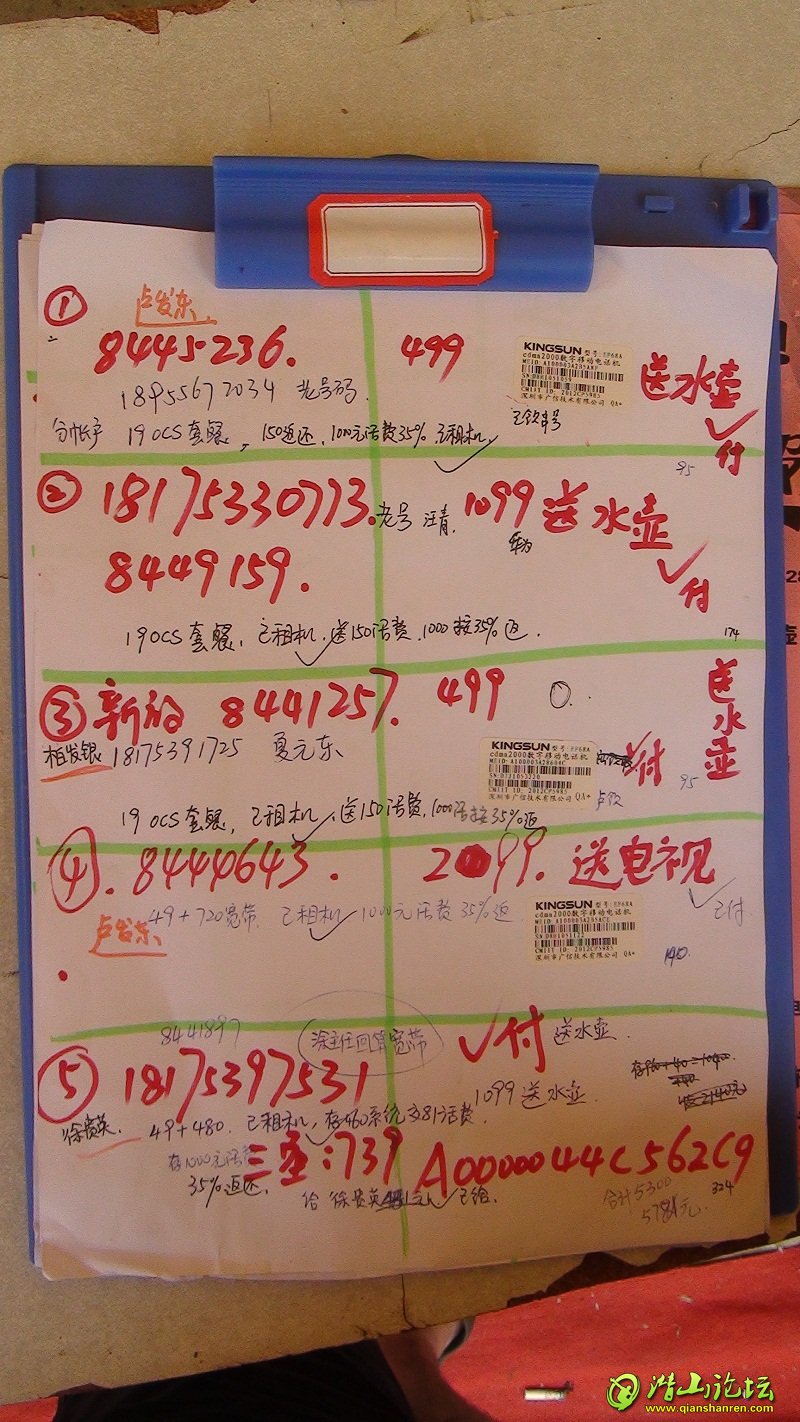 ①
卢发东
8445236. 499
KINGSUN 型号:EP68A
cdma2000数字移动电话机
CMIIT ID: 2012CP5985
深圳市广信技术有限公司 QA*
送水壶
18955672034 老号码.
19 OCS 套餐, 150返还, 1000元话费35% 已租机
付
95
② 18175330773. 老号 汪青. 1099 送水壶
华为
8449159.
付
19 OCS 套餐, 已租机, 送150话费, 1000按35%返.
174
③ 新放 8441257. 499
送水壶
柏发银 18175391725 夏元东
KINGSUN 型号:EP68A
cdma2000数字移动电话机
MEID:A100003A28604C
CMIIT ID: 2012CP5985
深圳市广信技术有限公司 QA*
付
95
19 OCS 套餐, 已租机, 送150话费, 1000话按35%返
④. 8440643. 2099. 送电视
卢发东
49+720宽带. 已租机 1000元话费35%返
KINGSUN 型号:EP68A
cdma2000数字移动电话机
CMIIT ID: 2012CP5985
深圳市广信技术有限公司 QA*
已付
190.
8441897
付 送水壶.
⑤ 18175397531
1099 送水壶.
徐贵英. 49+480. 已租机,
存1000元话费
35%返还.
三星:739 A0000044C562C9
给 徐贵英 已给.
合计5300
324
潜山论坛
www.qianshanren.com